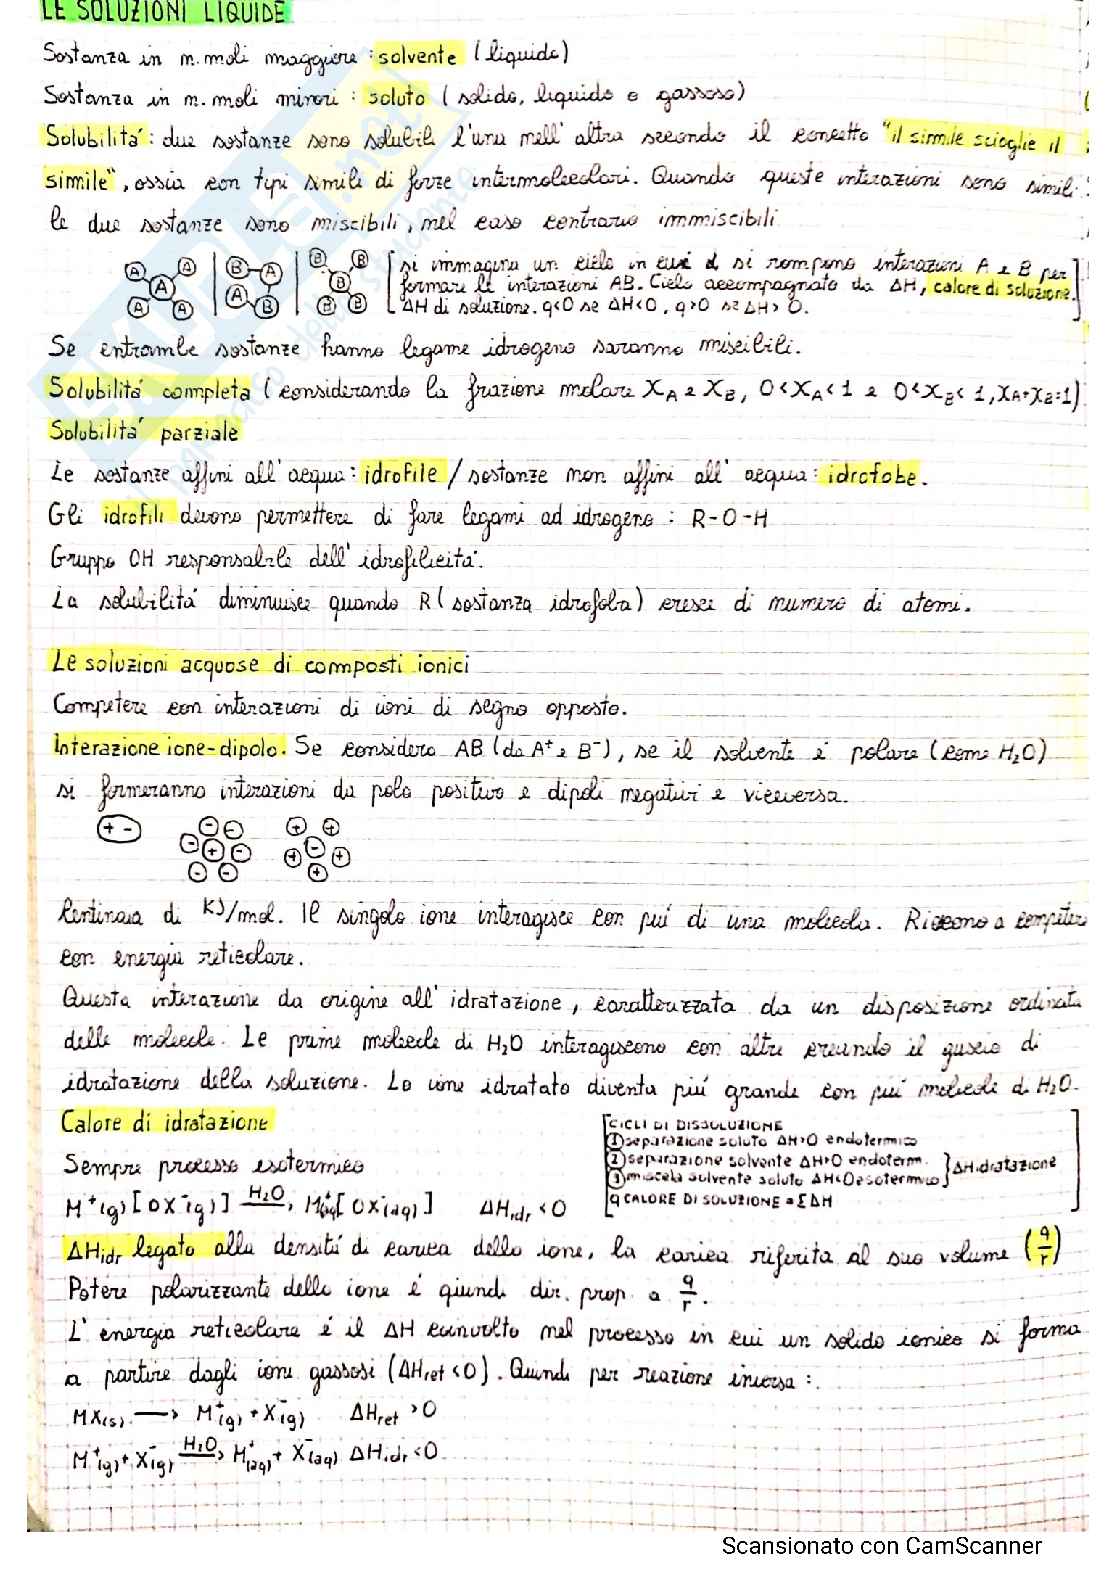 LE SOLUZIONI LIQUIDE
Sostanza in n.moli maggiore : solvente (liquido)
Sostanza in n.moli minori : soluto (solido, liquido o gassoso)
Solubilità: due sostanze sono solubili l'una nell'altra secondo il concetto "il simile scioglie il
simile", ossia con tipi simili di forze intermolecolari. Quando queste interazioni sono simili
le due sostanze sono miscibili, nel caso contrario immiscibili
A A A A A | B A A B | B B B B B
[si immagina un ciclo in cui si rompono interazioni A e B per
formare le interazioni AB. Ciclo accompagnato da ΔH, calore di soluzione.
ΔH di soluzione. q<0 se ΔH<0, q>0 se ΔH>0.]
Se entrambe sostanze hanno legame idrogeno saranno miscibili.
Solubilità completa (considerando la frazione molare XA e XB, 0<XA<1 e 0<XB<1, XA+XB=1)
Solubilità parziale
Le sostanze affini all'acqua: idrofile / sostanze non affini all'acqua: idrofobe.
Gli idrofili devono permettere di fare legami ad idrogeno : R-O-H
Gruppo OH responsabile dell'idrofilicità.
La solubilità diminuisce quando R (sostanza idrofoba) cresce di numero di atomi.
Le soluzioni acquose di composti ionici
Competere con interazioni di ioni di segno opposto.
Interazione ione-dipolo. Se considero AB (da A⁺ e B⁻), se il solvente è polare (come H₂O)
si formeranno interazioni da polo positivo e dipoli negativi e viceversa.
+ -
Centinaia di KJ/mol. Il singolo ione interagisce con più di una molecola. Riescono a competere
con energia reticolare.
Questa interazione da origine all'idratazione, caratterizzata da un disposizione ordinata
delle molecole. Le prime molecole di H₂O interagiscono con altre creando il guscio di
idratazione della soluzione. Lo ione idratato diventa più grande con più molecole di H₂O.
Calore di idratazione
Sempre processo esotermico
M⁺(g) [o X⁻(g)] H₂O→ M⁺(aq) [o X⁻(aq)] ΔHidr<0
[CICLI DI DISSOLUZIONE
① separazione soluto ΔH>0 endotermico
② separazione solvente ΔH>0 endoterm.
③ miscela solvente soluto ΔH<0 esotermico } ΔHidratazione
q CALORE DI SOLUZIONE = ΣΔH]
ΔHidr legato alla densità di carica dello ione, la carica riferita al suo volume (q/r)
Potere polarizzante dello ione è quindi dir. prop. a q/r.
L'energia reticolare è il ΔH coinvolto nel processo in cui un solido ionico si forma
a partire dagli ioni gassosi (ΔHret<0). Quindi per reazione inversa :
MX(s) → M⁺(g) + X⁻(g) ΔHret>0
M⁺(g) + X⁻(g) H₂O→ M⁺(aq) + X⁻(aq) ΔHidr<0
Scansionato con CamScanner